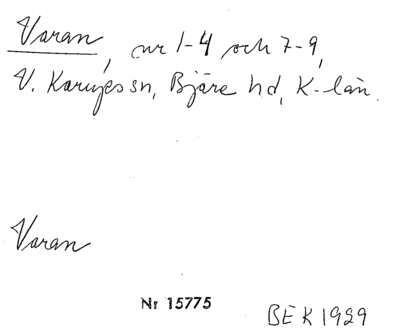 Varan, nr 1-4 och 7-9,
V. Karups sn, Bjäre hd, K-län.
Varan
Nr 15775
BEK 1929